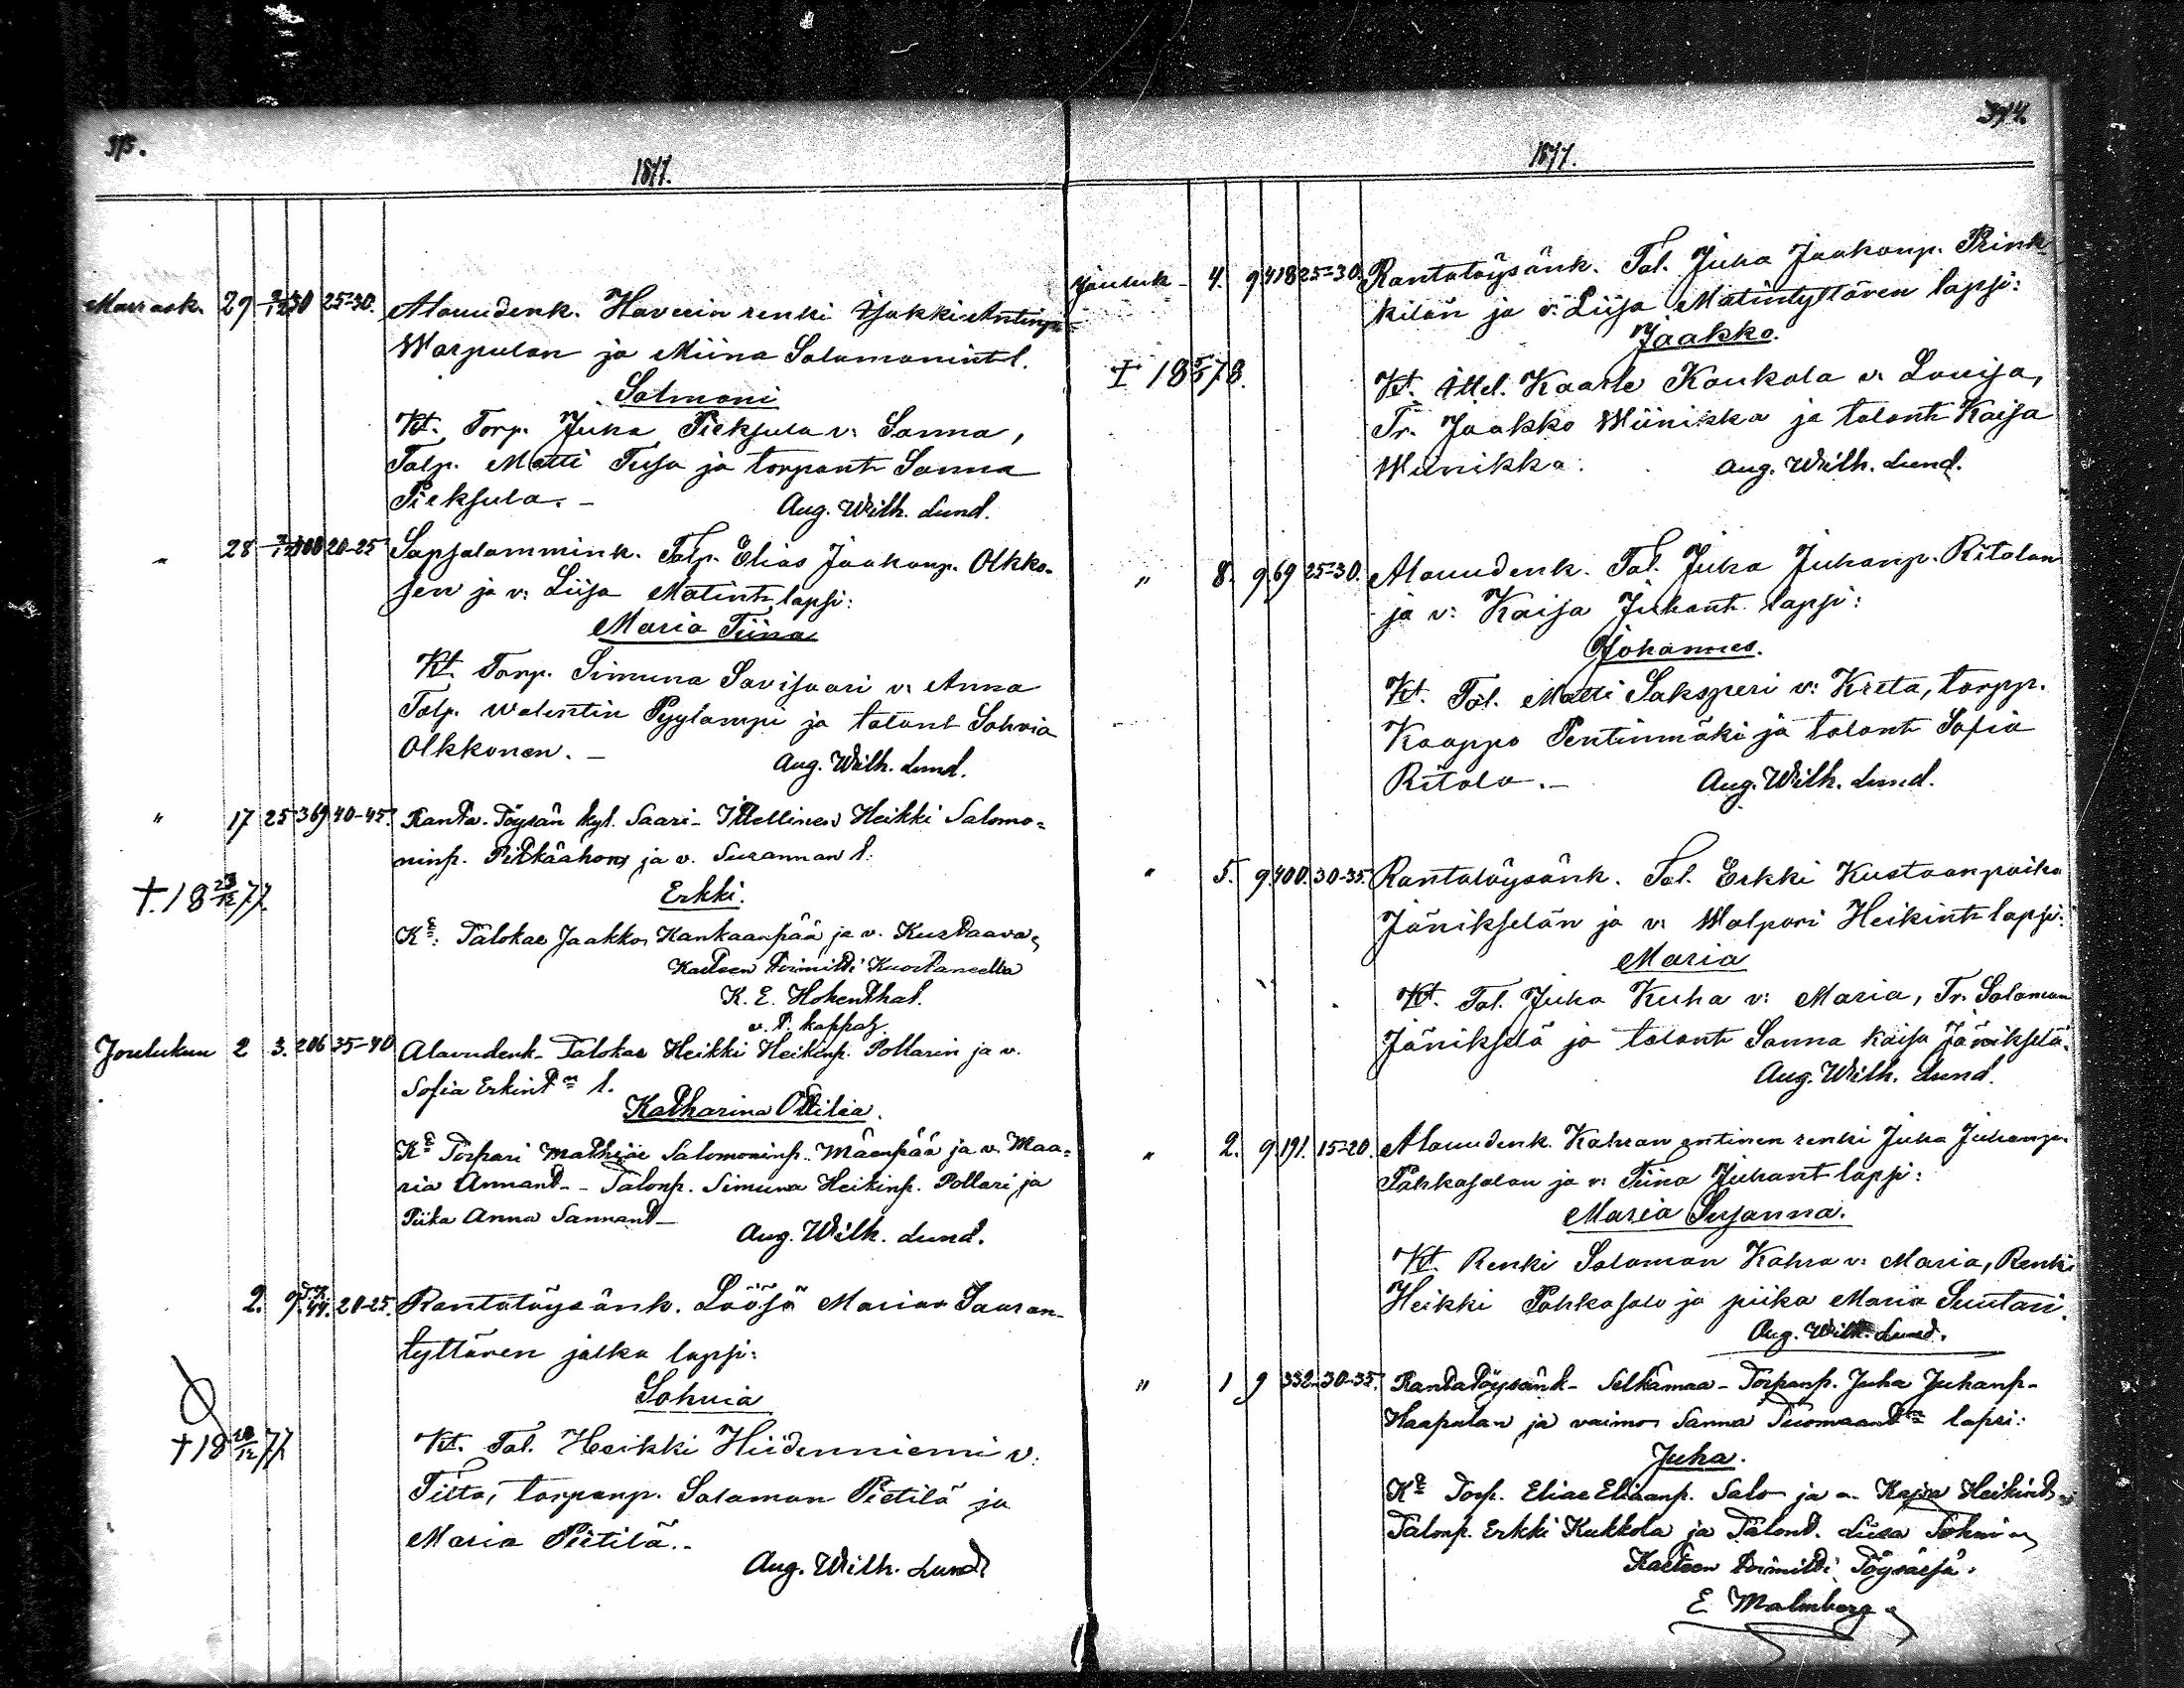 1877.
Marrask. 29 2/12 30 25-30. Alavudenk. Haverin renki Jaakki Antinp.
Warpulan ja Miina Salamonintl.
Salmoni
Kt. Torp. Juha Pieksula v: Sanna,
Talp. Matti Tusa ja torpant. Sanna
Pieksula. - Aug. Wilh. Lund.
" 28 20-25 Sapsalammink. Talp. Elias Jaakonp. Olkko-
sen ja v: Liisa Matintr lapsi:
Maria Tiina
Kt. Torp. Simuna Savisaari v: Anna
Talp. Walentin Pyylampi ja talont Sohvia
Olkkonen. - Aug. Wilh. Lund.
" 17 25 369 40-45. Ranta-Töysän kyl. Saari- Itellinen Heikki Salomo=
ninp. Pitkäahon ja v. Susannan l:
†. 18 23/12 77.
Erkki.
Kt: Talokas Jaakko Kankaanpää ja v. Kustaava,
Kasteen toimitti Kuortaneella
K. E. Hohenthal.
v. t. kappal.
Joulukuu 2 3. 206 35-40 Alavudenk- Talokas Heikki Heikinp. Pollarin ja v.
Sofia Erkint. l.
Katharina Ottilia.
Kt Torpari Mathias Salomoninp. Mäenpää ja v. Maa=
ria Annant- - Talonp. Simuna Heikinp. Pollari ja
Piika Anna Sannant-
Aug. Wilh. Lund.
2. 9 44. 20-25. Rantatöysänk. Löösä Maria Saaran-
tyttären jalka lapsi:
Sohvia
† 18 28/12 77
Kt. Tal. Heikki Hiidenniemi v:
Tiita, torpanp. Salamon Pietilä ja
Maria Pietilä.-
Aug. Wilh. Lund.
394.
1877.
Jouluk- 4. 9 418 25-30. Rantatöysänk. Tal. Juha Jaakonp. Prink-
kilän ja v: Liisa Matintyttären lapsi:
Jaakko.
† 18 5/5 78.
Kt. Ittel. Kaarle Koukola v: Lovisa,
Tr. Jaakko Wiinikka ja talont Kaisa
Wiinikka. Aug. Wilh. Lund.
" 8. 9 69 25-30. Alavudenk. Tal. Juha Juhanp. Ritolan
ja v: Kaisa Juhant lapsi:
Johannes.
Kt. Tal. Matti Saksperi v: Kreta, torpp.
Kaappo Pentinmäki ja talont Sofia
Ritola. - Aug. Wilh. Lund.
" 5. 9 400. 30-35. Rantatöysänk. Tal. Erkki Kustaanpoika
Jänikselän ja v: Walpori Heikintr lapsi:
Maria
Kt. Tal. Juha Kuha v: Maria, Tr. Salamon
Jänikselä ja talont Sanna Kaisa Jänikselä.
Aug. Wilh. Lund.
" 2. 9 191. 15-20. Alavudenk. Kahran entinen renki Juha Juhanp.
Pahkasalan ja v: Tiina Juhant lapsi:
Maria Susanna.
Kt. Renki Salamon Kahra v: Maria, Renki
Heikki Pahkasalo ja piika Maria Suutari.
Aug. Wilh. Lund.
" 1 9 332 30-35. Rantatöysänk- Selkämaa- Torpanp. Juha Juhanp-
Haapalan ja vaimon Sanna Tuomaant. lapsi:
Juha.
Kt Torp. Elias Eliaanp. Salo ja v. Kajsa Heikint
Talonp. Erkki Kukkola ja Talont. Liisa
Kasteen toimitti Töysässä.
E. Malmberg